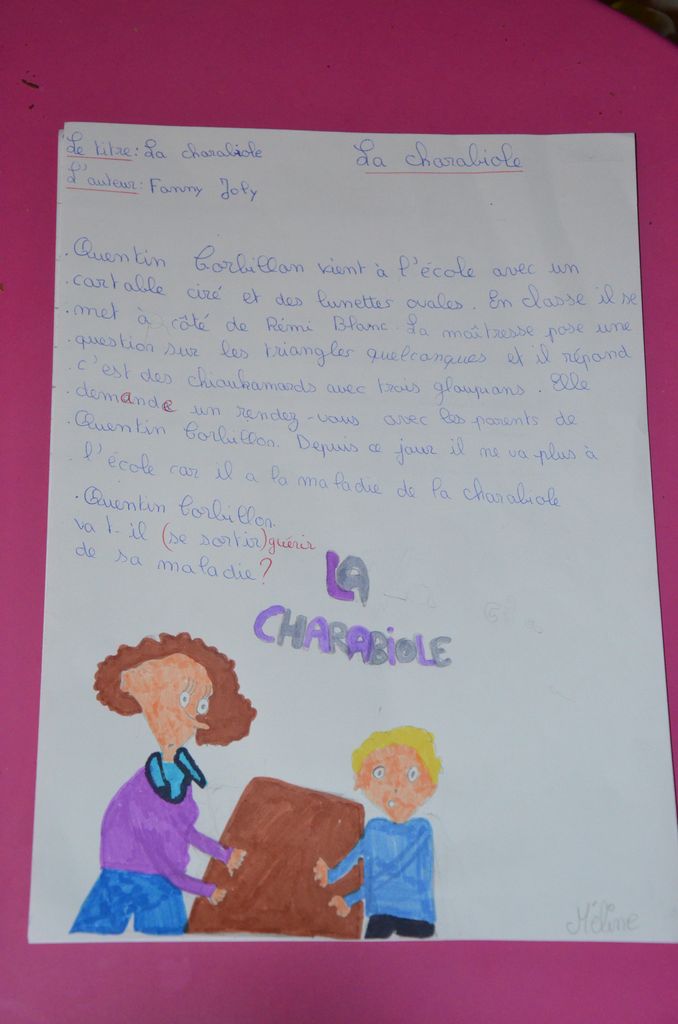 Le titre : La charabiole
La charabiole
L'auteur : Fanny Joly
Quentin Corbillon vient à l'école avec un
cartable ciré et des lunettes ovales. En classe il se
met à côté de Rémi Blanc. La maîtresse pose une
question sur les triangles quelcanques et il répond
c'est des chioukamards avec trois gloupions. Elle
demande un rendez-vous avec les parents de
Quentin Corbillon. Depuis ce jour il ne va plus à
l'école car il a la maladie de la charabiole
Quentin Corbillon
va t-il (se sortir) guérir
de sa maladie ?
LA
CHARABIOLE
Méline